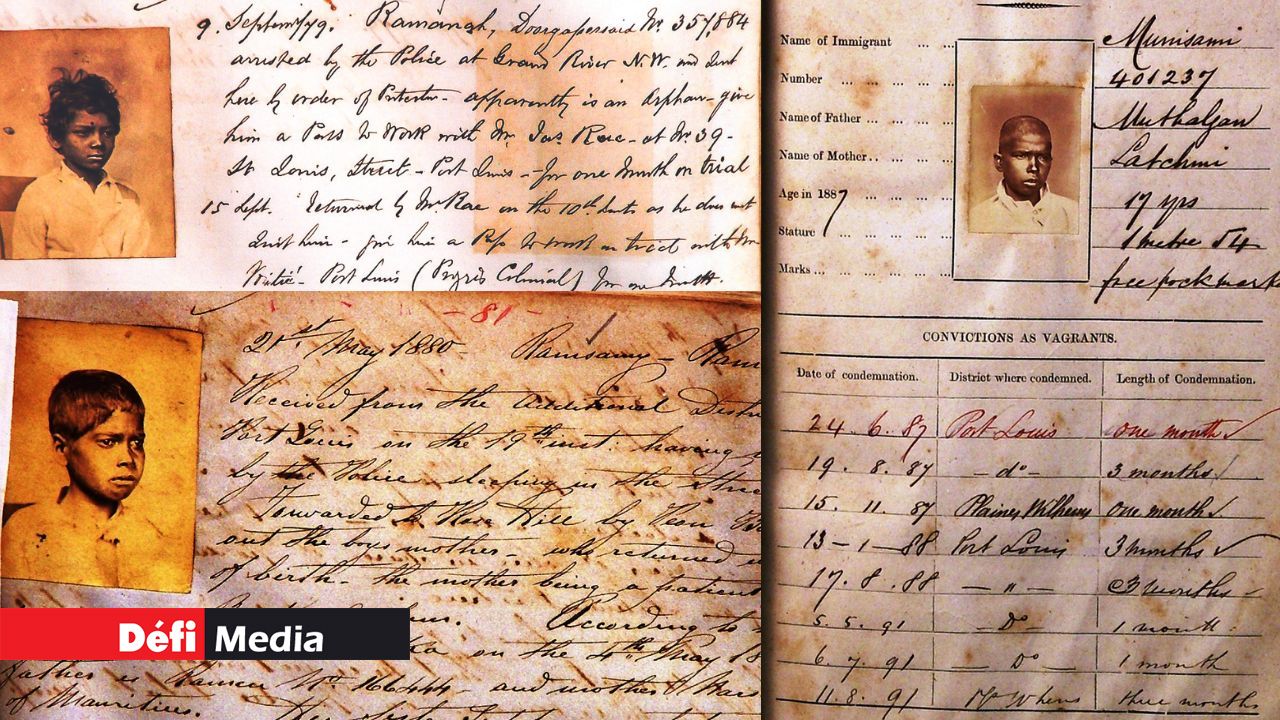 9. Septem/79. Ramangh, Doorgapersaid No. 357,884
arrested by the Police at Grand River N.W. and sent
here by order of Protector - apparently is an Orphan - give
him a Pass to Work with Mr. Jas. Rae - at No. 39 -
St Louis, Street - Port Louis - for one month on trial
15 Sept. Returned by Mr. Rae on the 10th as he does not
suit him - give him a Pass to work on trial with
Port Louis (Progrès Colonial) for one month.
- 81 -
21st May 1880 - Ramsamy - Ram
Received from the Additional Distr
Port Louis on the 19th inst: having
by the Police sleeping in the stre
Forwarded to Rose Hill by
out the boys mother - who returned
of birth - the mother being a patient
According to
on the 4th May 18
father is No 166444 - and mother
of Mauritius.
Défi Media
Name of Immigrant ... ... Munisami
Number ... ... ... ... 401237
Name of Father ... ... ... Muthalgan
Name of Mother.. ... ... ... Latchmi
Age in 1887 ... ... ... 17 yrs
Stature ... ... ... ... 1 metre 54
Marks ... ... ... ... pock mark
CONVICTIONS AS VAGRANTS.
Date of condemnation. District where condemned. Length of Condemnation.
24. 6. 87 Port Louis one month
19. 8. 87 - do - 3 months
15. 11. 87 Plaines Wilhems one month
13 - 1 - 88 Port Louis 3 months
17. 8. 88 - " - 3 months
5. 5. 91 - Do - 1 month
6. 7. 91 - Do - 1 month
11. 8. 91 three months